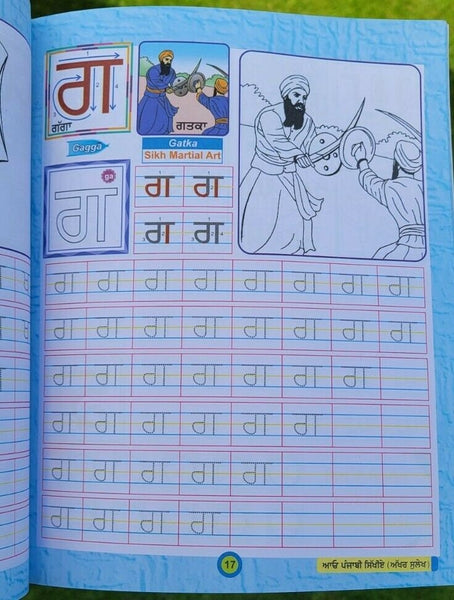 ਗ
ਗੱਗਾ
Gagga
ਗਤਕਾ
Gatka
Sikh Martial Art
ga
ਗ
ਗ ਗ
ਗ ਗ
ਗ ਗ ਗ ਗ ਗ ਗ ਗ ਗ
ਗ ਗ ਗ ਗ ਗ ਗ ਗ ਗ
ਗ ਗ ਗ ਗ ਗ ਗ ਗ
ਗ ਗ ਗ ਗ ਗ ਗ
ਗ ਗ ਗ ਗ ਗ
ਗ ਗ ਗ ਗ
17
ਆਓ ਪੰਜਾਬੀ ਸਿੱਖੀਏ (ਅੱਖਰ ਸੁਲੇਖ)